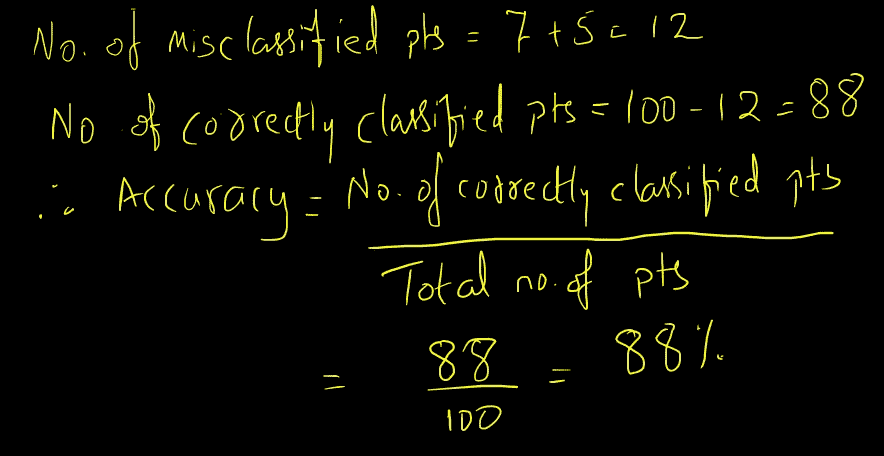 No. of misclassified pts = 7 + 5 = 12
No of correctly classified pts = 100 - 12 = 88
∴ Accuracy = No. of correctly classified pts
Total no. of pts
= 88 = 88%
100